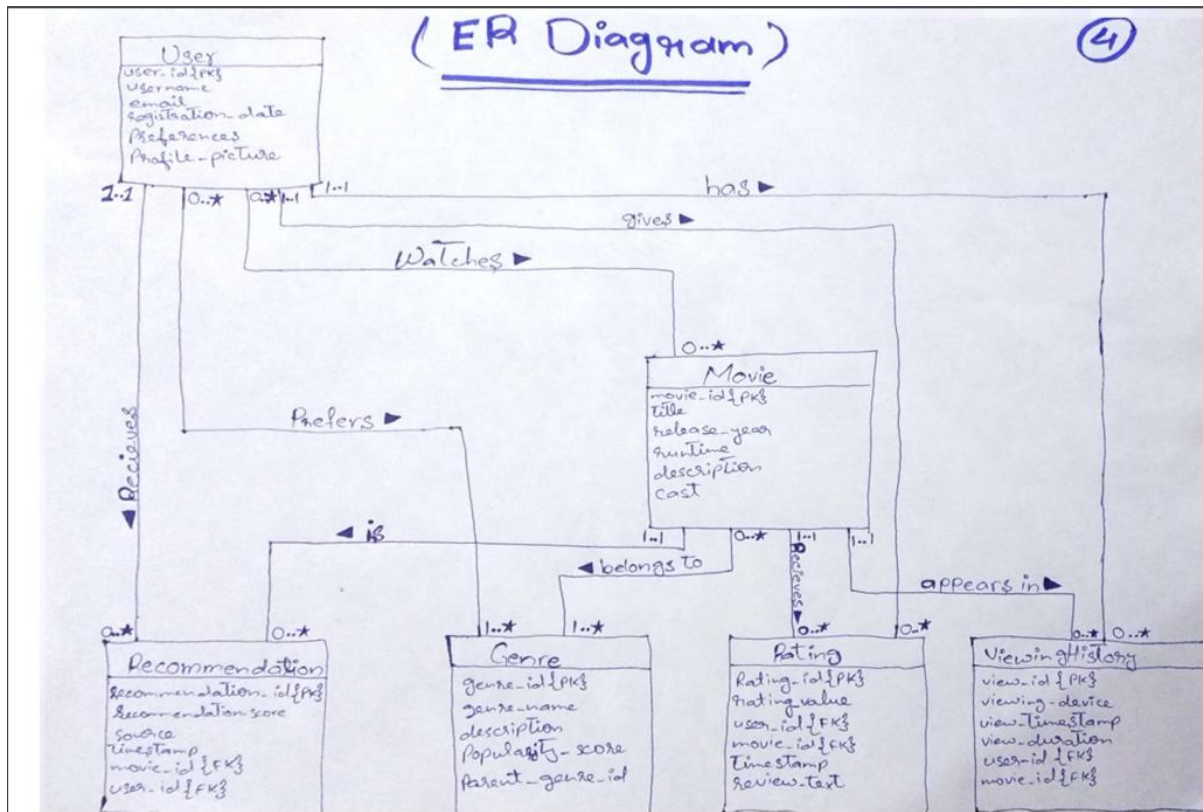 (ER Diagram)
4
User
user-id{PK}
username
email
registration-date
Preferences
Profile-picture
1..1
0..*
0..*
1..1
1..1
has ►
gives ►
Watches ►
0..*
Movie
movie-id{PK}
Title
release-year
runtime
description
cast
Prefers ►
◄ Recieves
1..1
0..*
1..1
1..1
◄ is
◄ belongs to
Recieves ►
appears in ►
0..*
0..*
1..*
1..*
0..*
0..*
0..*
0..*
Recommendation
recommendation-id{PK}
recommendation-score
source
timestamp
movie-id{FK}
user-id{FK}
Genre
genre-id{PK}
genre-name
description
Popularity-score
Parent-genre-id
Rating
Rating-id{PK}
rating-value
user-id{FK}
movie-id{FK}
Timestamp
review-text
ViewingHistory
view-id{PK}
viewing-device
view-timestamp
view-duration
user-id{FK}
movie-id{FK}